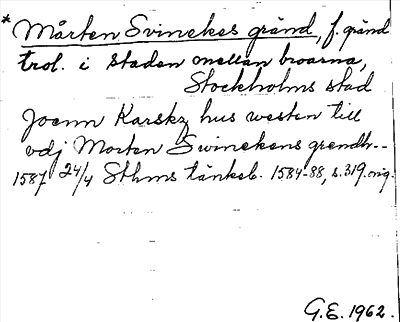 * Mårten Svinekes gränd, f. gränd
trol. i staden mellan broarna,
Stockholms stad
Joenn Karsky hus westen till
vdj Morten Swinekens grendh--
1587 24/4 Sthms tänkeb. 1584-88, s. 319. orig.
G.E. 1962.